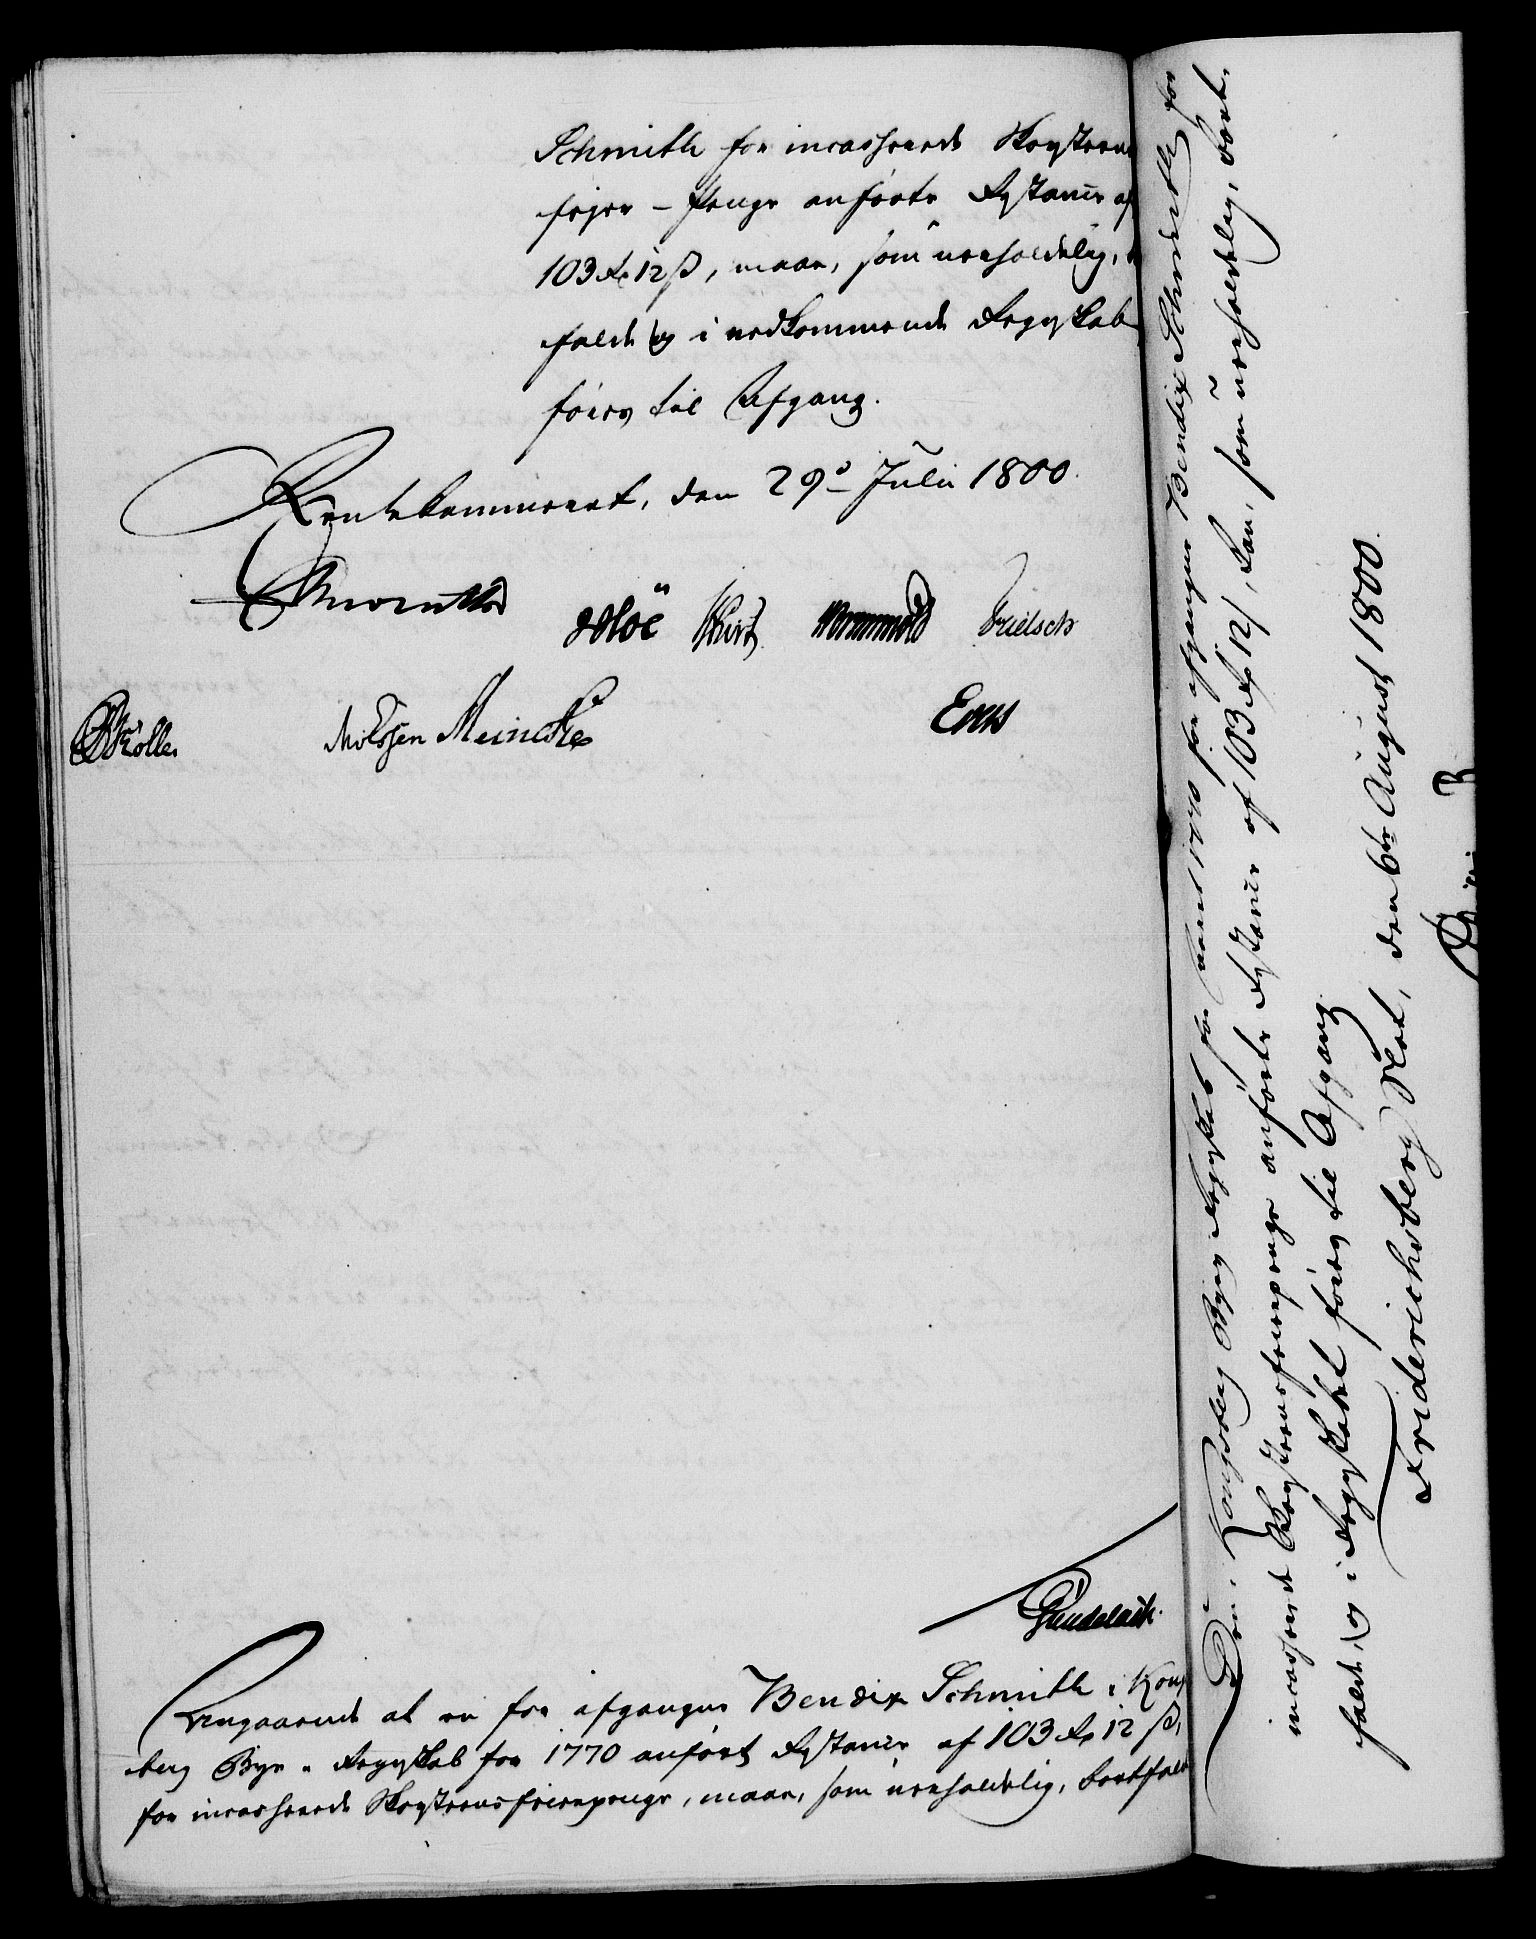 Schmith for incasserede Skorsteens
fejer-Penge anførte Restance af
103 Rd 12 ß, maae, som uerholdelig, 
falde og i vedkommende Regnskab
føres til Afgang.
Rentekammeret, den 29d Julii 1800.
Hoë Wormskiold
Meincke
Engaaende at en for afgangne Bendix Schmith i Kongs
berg Byes Regnskab for 1770 anført Restance af 103 Rd 12 ß,
for incasserede Skorsteensfeierpenge, maae, som uerholdelig, bortfalde
Den i Kongsberg Byes Regnskab for Aaret 1770 for afgangne Bendix Schmith for
incasserede Skorsteensfeierpenge anførte Restance af 103 Rd 12 ß, kan, som uerholdelig, bort-
falde, og i Regnskabet føres til Afgang.
Friderichsberg Slot, den 6te August 1800.